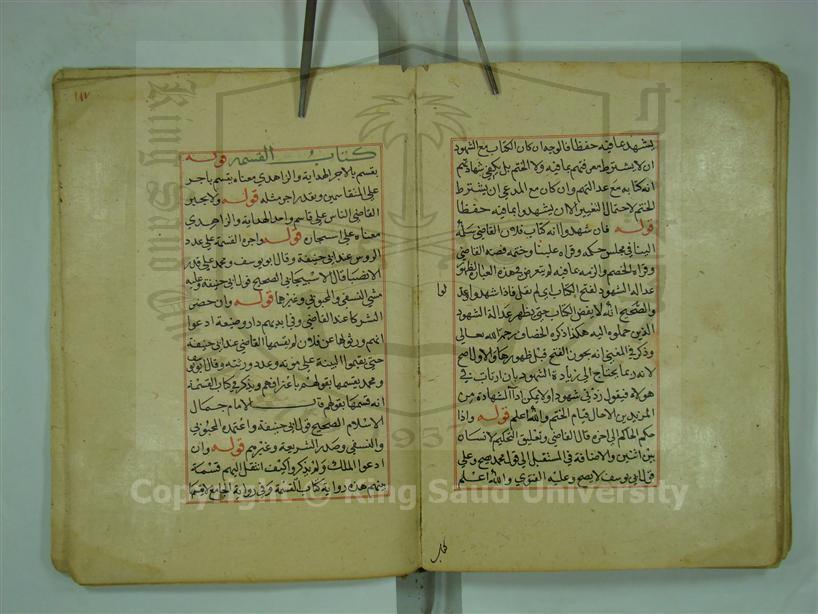 يشهد بما فيه حفظا فالوجه ان كان الكتاب مع الشهود
ان لا يشترط معرفتهم بما فيه ولا الختم بل يكفي شهادتهم
انه كتابه مع عدالتهم وان كان مع المدعي ان يشترط
الختم لاحتمال التغيير الا ان يشهدوا بما فيه حفظا
قوله فان شهدوا انه كتاب فلان القاضي سلمه
الينا في مجلس حكمه وقراه علينا وختمه فضه القاضي
وقراه على الخصم والزمه بما فيه لم يتعرض في هذه العبارة لظهور
عدالة الشهود لفتح الكتاب اي لم يقل فاذا شهدوا وعدلوا
والصحيح انه لا يفض الكتاب حتى يظهر عدالة الشهود
الذين حملوه اليه هكذا ذكره الخصاف رحمه الله تعالى
وذكر في المغني انه يجوز الفتح قبل ظهورها والاول اصح
لانه ربما يحتاج الى زيادة الشهود بان ارتاب في
هؤلاء فيقول زد في شهودك ولا يمكن اداء الشهادة من
المزيد من الا حال قيام الختم والله اعلم قوله واذا
حكم الحاكم الى اخره قال القاضي وتعليق التحكيم لانسان
بين اثنين والاضافة في المستقبل الى قول محمد صح وعلى
قول ابي يوسف لا يصح وعليه الفتوى والله اعلم
كتاب
١١٧
كتاب القسمة قوله
يقسم بالاجر الهداية والزاهدي معناه يقسم باجر
على المتقاسمين ويقدر اجر مثله قوله ولا يجبر
القاضي الناس على قاسم واحد الهداية والزاهدي
معناه على استيجار قوله واجرة القسمة على عدد
الروس عند ابي حنيفة وقال ابو يوسف ومحمد على قدر
الانصبا قال الاسبيجابي الصحيح قول ابي حنيفة وعليه
مشى النسفي والمحبوبي وغيرها قوله وان حضر
الشركا عند القاضي وفي يديهم دار وضيعة ادعوا
انهم ورثوها عن فلان لم يقسمها القاضي عند ابي حنيفة
حتى يقيموا البينة على موته وعدد ورثته وقال ابو يوسف
ومحمد يقسمها بقولهم باعترافهم ويذكر في كتاب القسمة
انه قسمها بقولهم قال الامام جمال
الاسلام الصحيح قول ابي حنيفة واعتمده المحبوبي
والنسفي وصدر الشريعة وغيرهم قوله وان
ادعوا الملك ولم يذكروا كيف انتقل اليهم قسمة
بينهم هذه رواية كتاب القسمة وفي رواية الجامع لا يقسمها
King Saud University
1957
Copyright © King Saud University